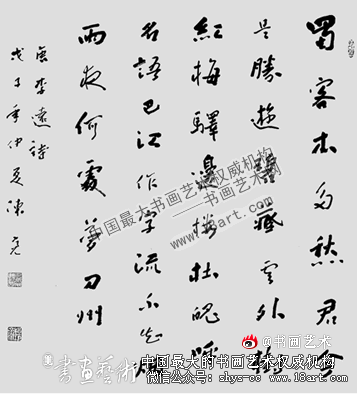 蜀客本多愁君今
是勝遊碧藏雲外樹
紅梅驛邊樓杜魄呼
名語巴江作字流不知煙
雨夜何處夢刀州
唐李遠詩
戊子年仲夏陳
中国最大的书画艺术权威机构
——书画艺术网
www.18art.com
@书画艺术
書畫藝術
中国最大的书画艺术权威机构
微信公众号：shys-cc www.18art.com